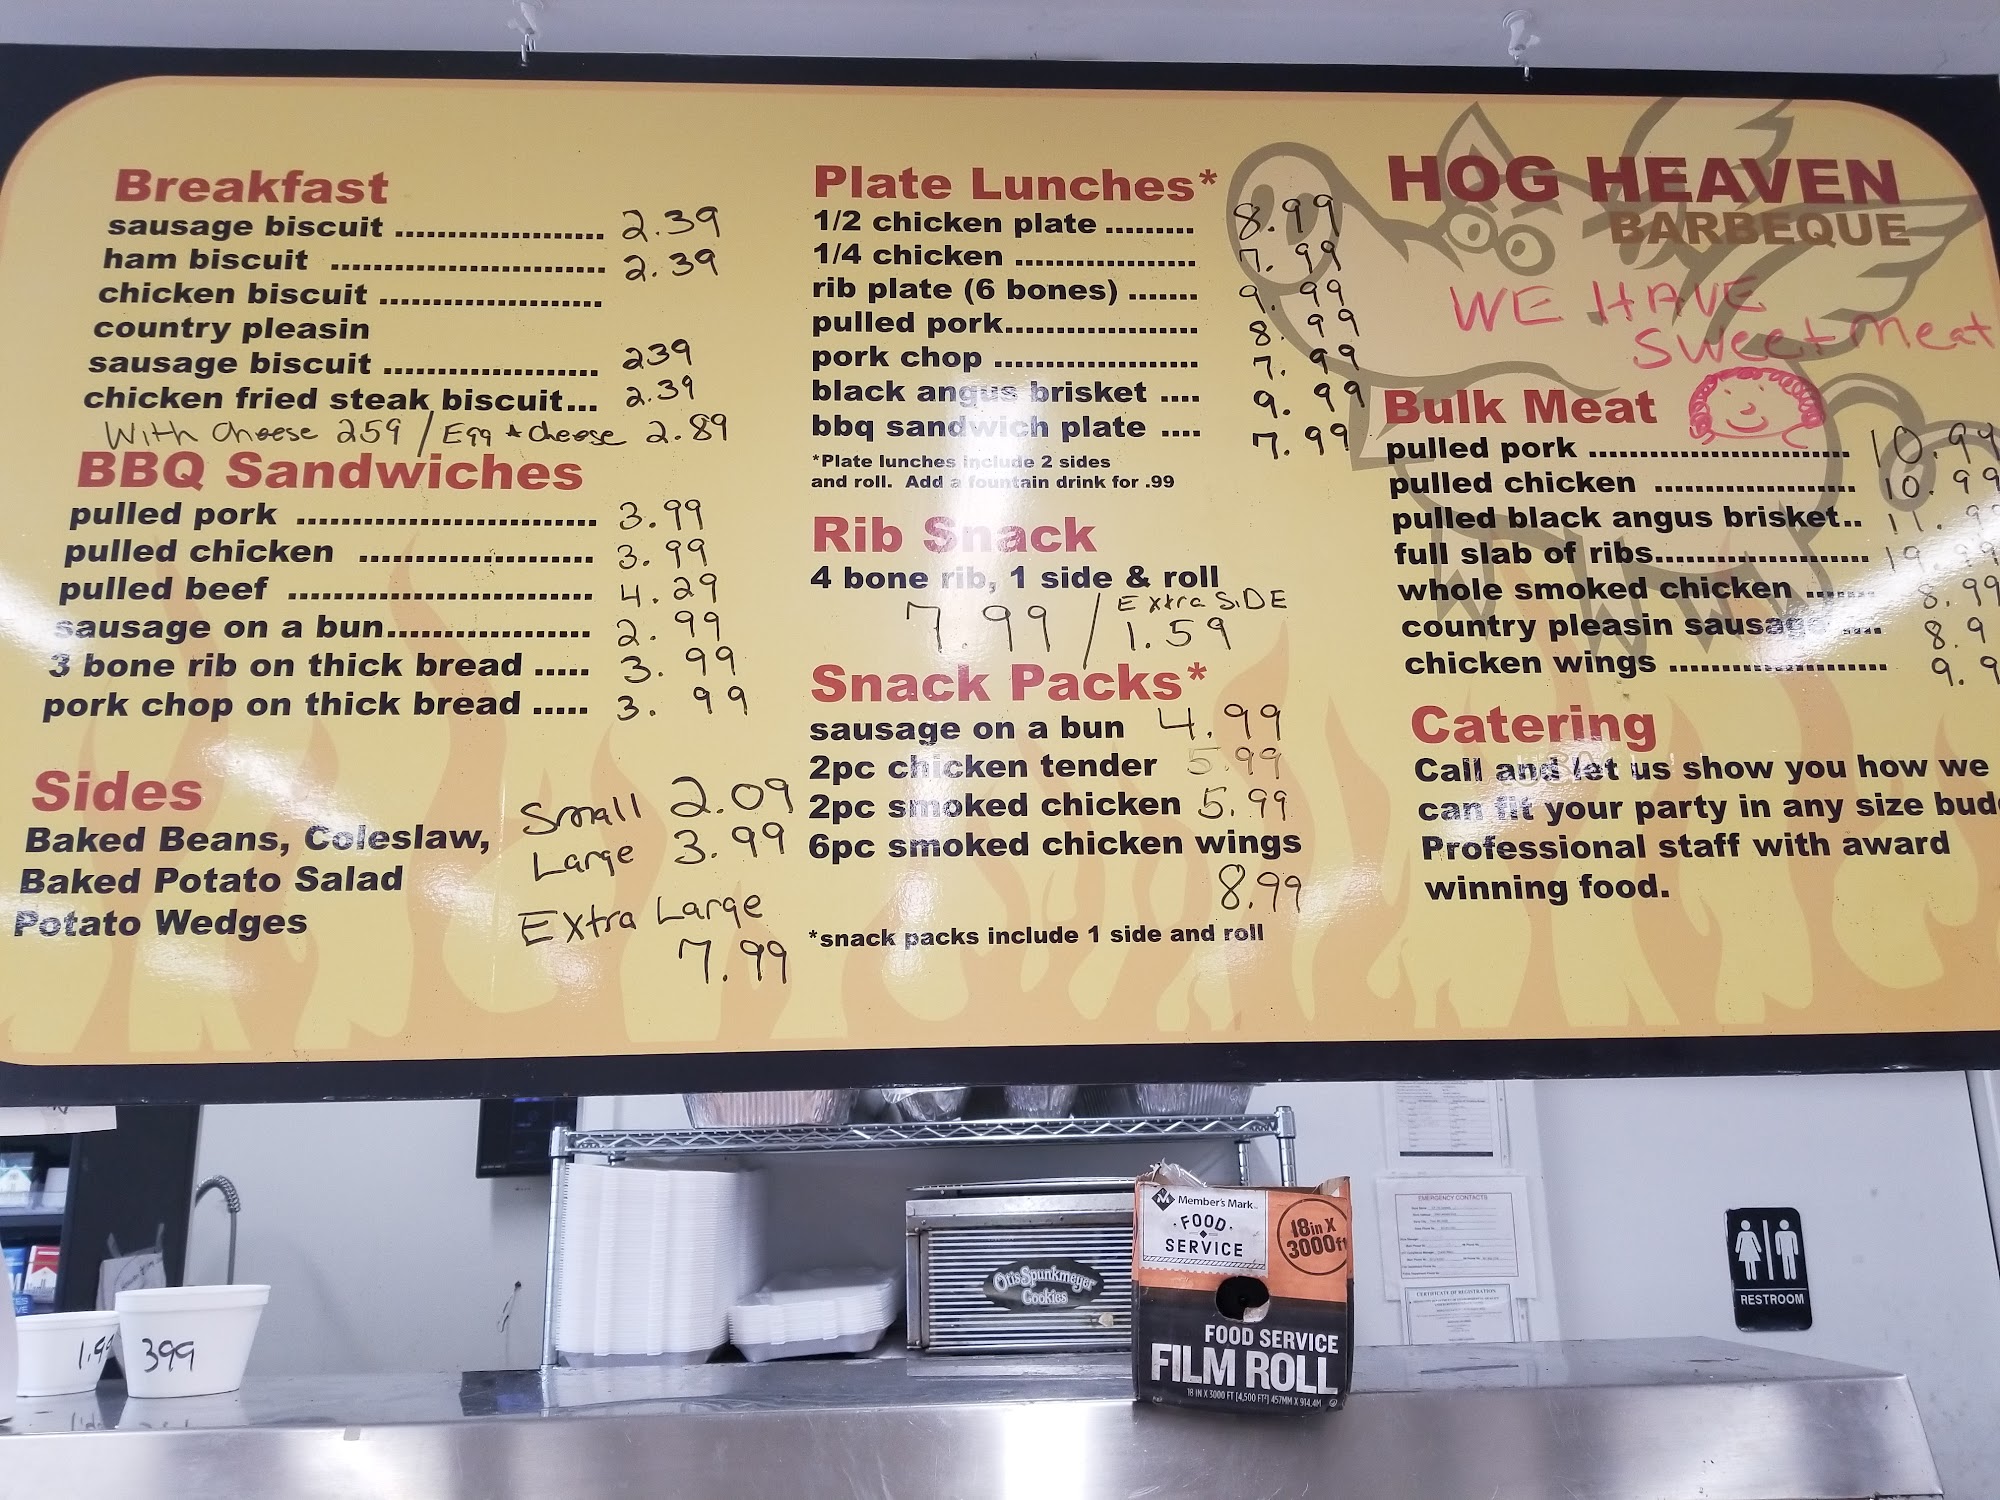 Breakfast
sausage biscuit ..................... 2.39
ham biscuit ......................... 2.39
chicken biscuit ....................
country pleasin
sausage biscuit ................... 239
chicken fried steak biscuit... 2.39
With cheese 259 / Egg + cheese 2.89
BBQ Sandwiches
pulled pork ........................... 3.99
pulled chicken ..................... 3.99
pulled beef ........................... 4.29
sausage on a bun.................. 2.99
3 bone rib on thick bread ..... 3.99
pork chop on thick bread ..... 3.99
Sides
Baked Beans, Coleslaw,
Baked Potato Salad
Potato Wedges
Small 2.09
Large 3.99
Extra Large
7.99
Plate Lunches*
1/2 chicken plate ......... 8.99
1/4 chicken .................. 7.99
rib plate (6 bones) ....... 9.99
pulled pork................... 8.99
pork chop .................... 7.99
black angus brisket .... 9.99
bbq sandwich plate .... 7.99
*Plate lunches include 2 sides
and roll. Add a fountain drink for .99
Rib Snack
4 bone rib, 1 side & roll
7.99 / Extra SiDE
1.59
Snack Packs*
sausage on a bun 4.99
2pc chicken tender 5.99
2pc smoked chicken 5.99
6pc smoked chicken wings
8.99
*snack packs include 1 side and roll
HOG HEAVEN
BARBEQUE
WE HAVE
Sweetmeat
Bulk Meat
pulled pork .......................... 10.99
pulled chicken .................... 10.99
pulled black angus brisket.. 11.9
full slab of ribs..................... 19.99
whole smoked chicken ....... 8.99
country pleasin sausage .... 8.9
chicken wings ...................... 9.9
Catering
Call and let us show you how we
can fit your party in any size bud
Professional staff with award
winning food.
1.9
399
Otis Spunkmeyer
Cookies
Member's Mark
FOOD
SERVICE
18in X
3000ft
FOOD SERVICE
FILM ROLL
18 IN X 3000 FT [4,500 FT²] 457MM X 914.4M
EMERGENCY CONTACTS
CERTIFICATE OF REGISTRATION
RESTROOM